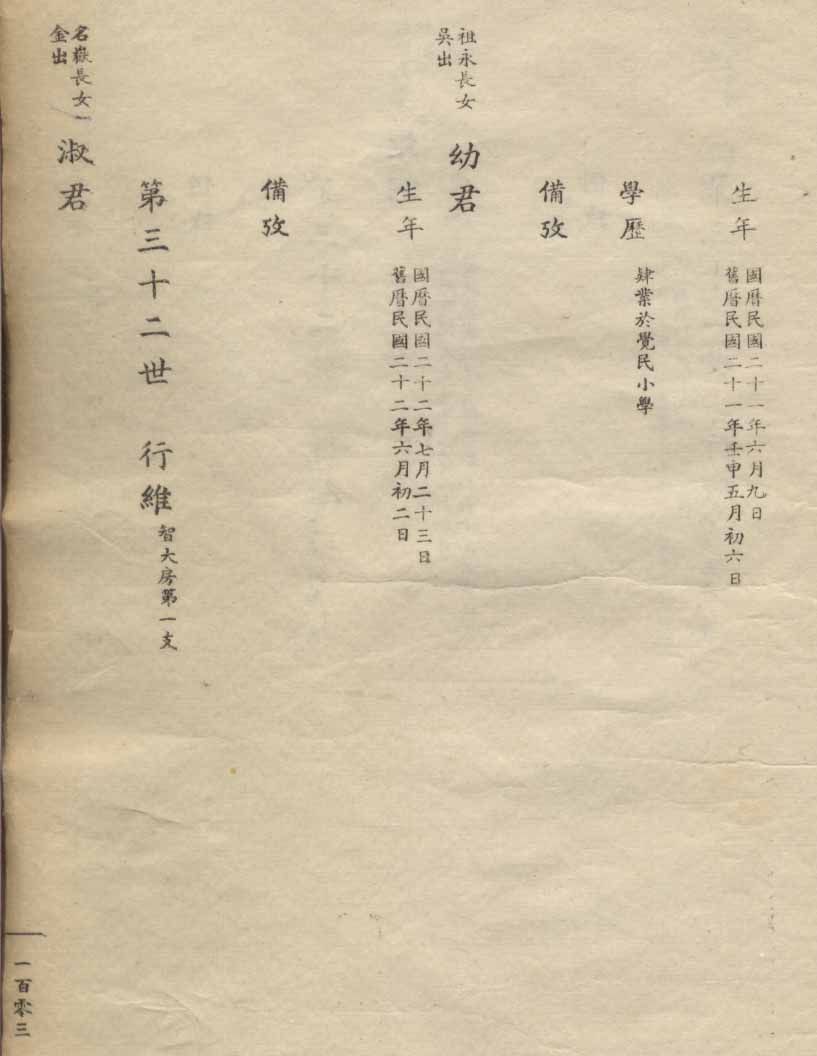 生年
國曆民國二十一年六月九日
舊曆民國二十一年壬申五月初六日
學歷
肄業於覺民小學
備攷
祖永長女
吳出
幼君
生年
國曆民國二十二年七月二十三日
舊曆民國二十二年六月初二日
備攷
第三十二世 行維 智大房第一支
名嶽長女一
金出
淑君
一百零三